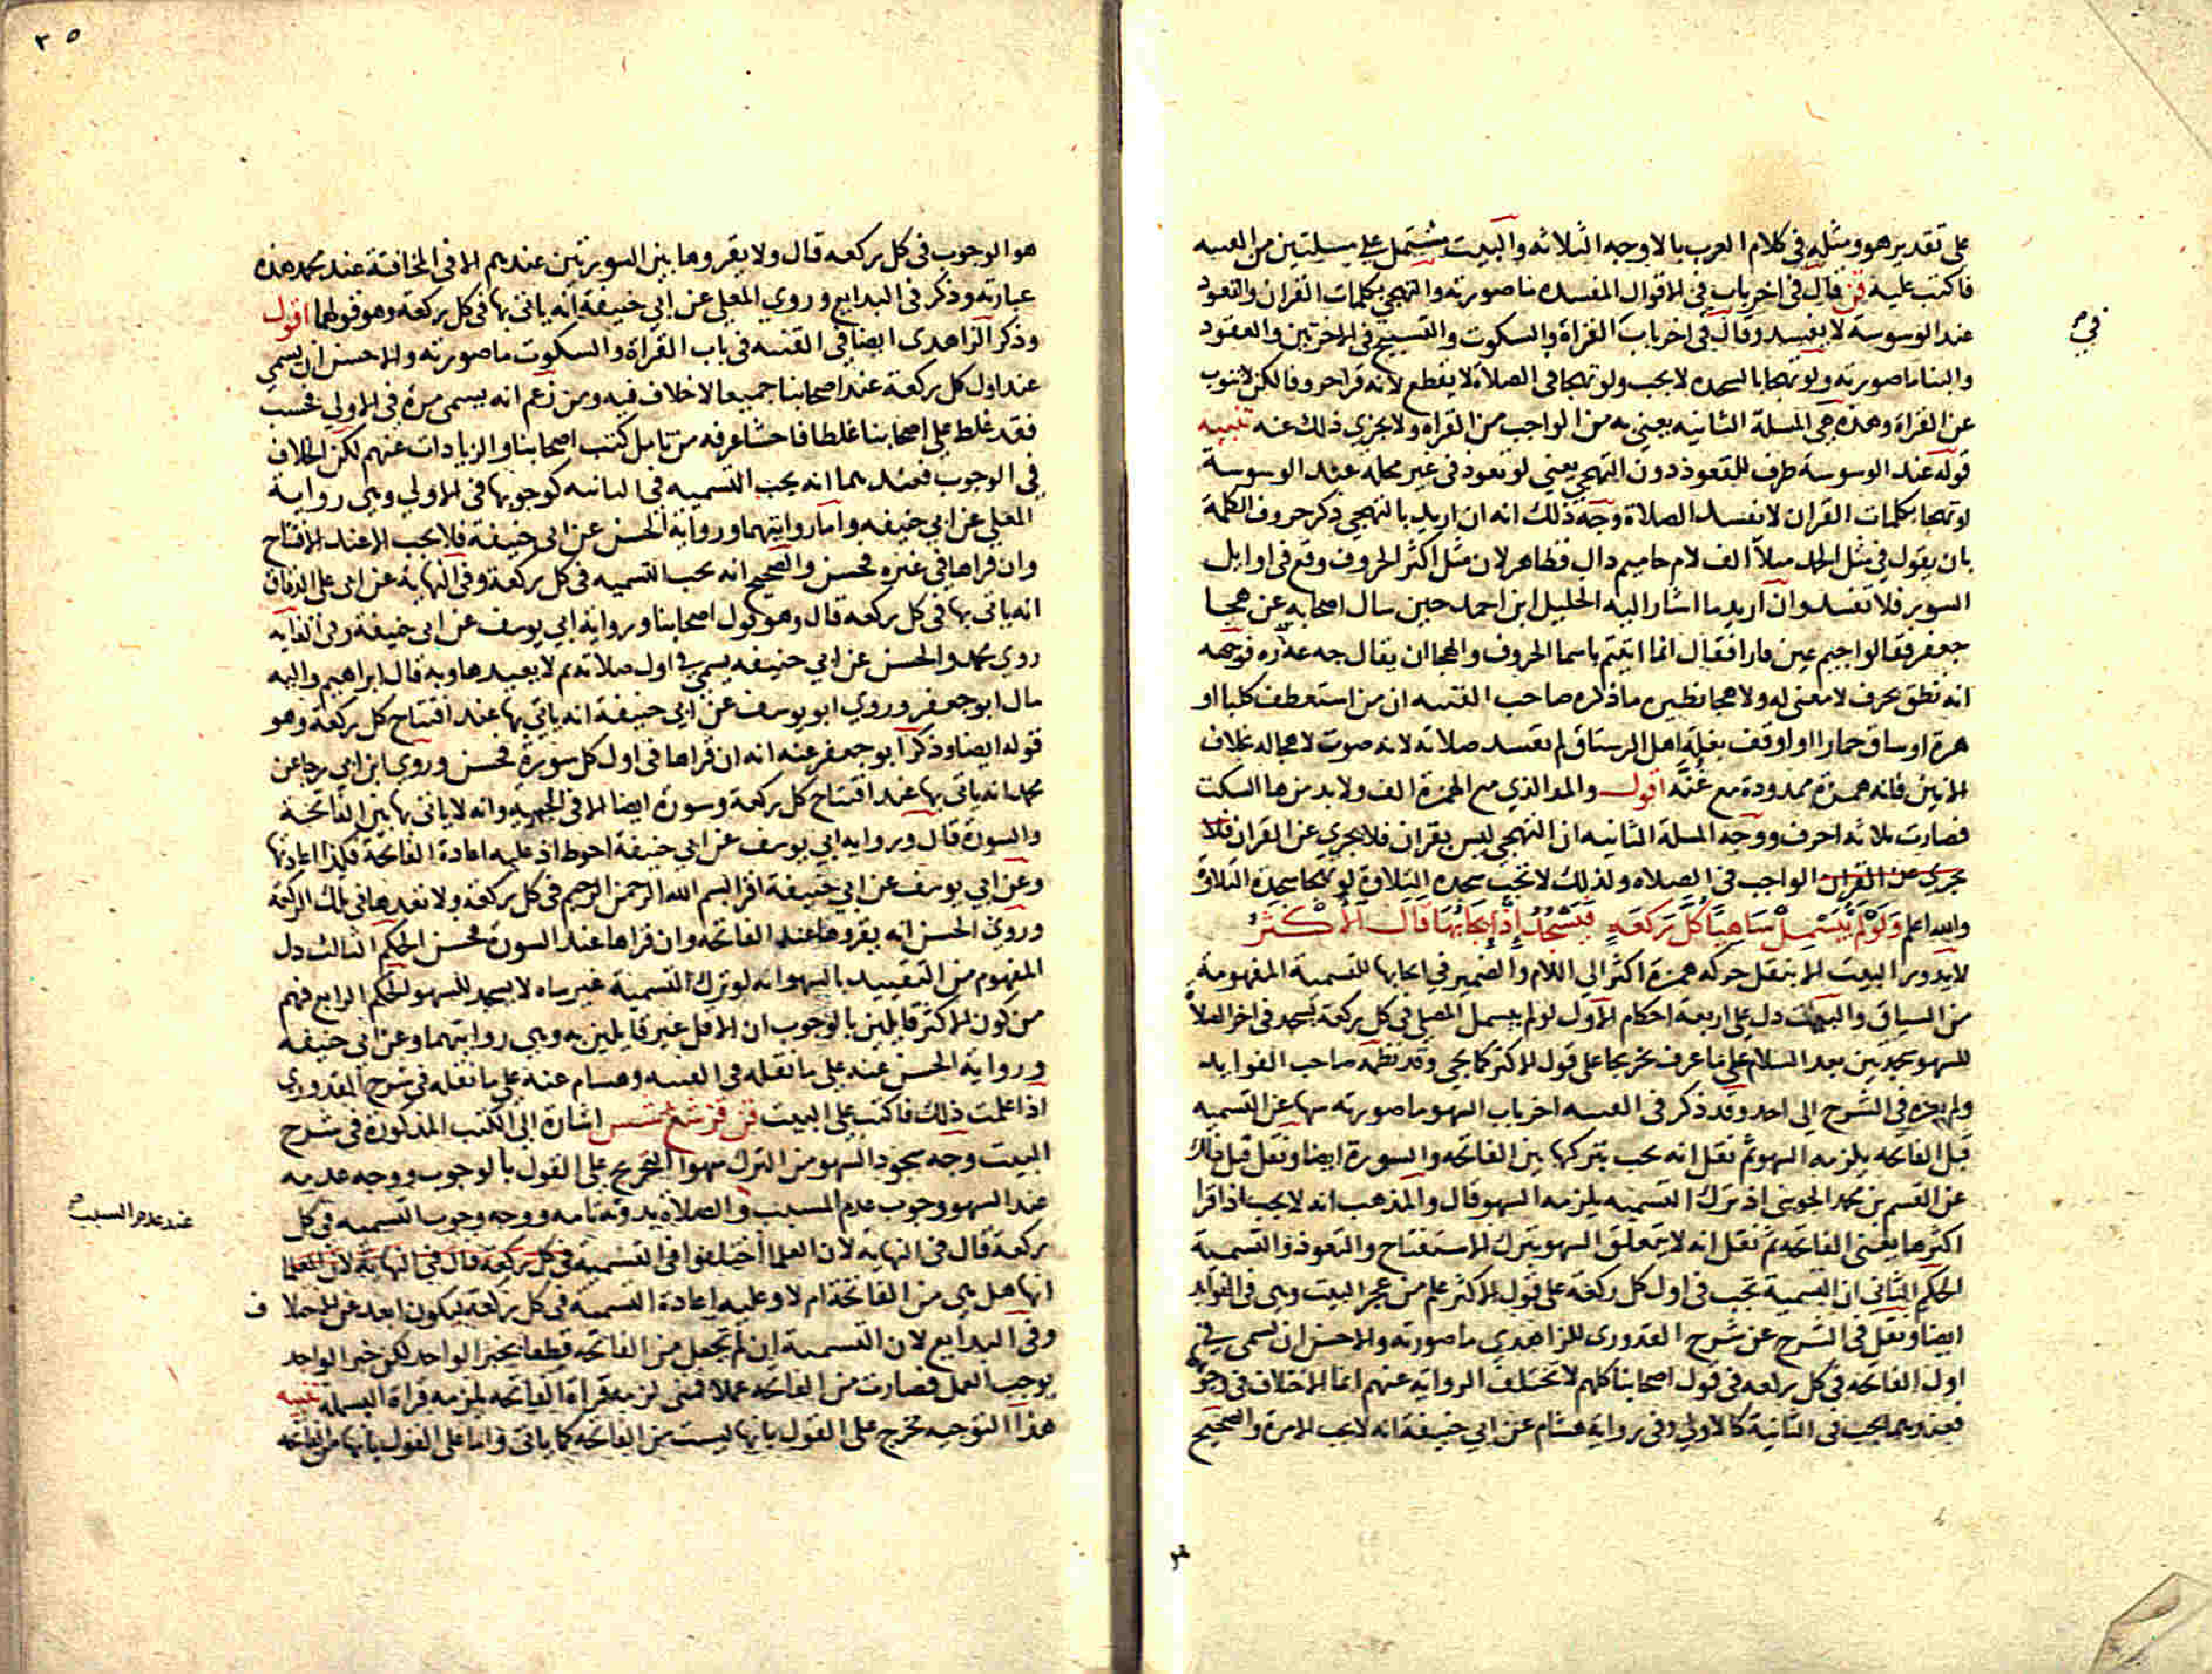 على تقدير هو ومثله في كلام العرب بالاوجه الثلاثه والبيت مشتمل على مسلتين من القنيه
فاكتب عليه قن قال في اخر باب في الاقوال المفسده ما صورته والتهجي بكلمات القران والتعوذ
عند الوسوسة لا يفسد وقال في اخر باب القراة والسكوت والتسبيح في الاخرتين والعقود
والبنا ما صورته ولو تهجا بالسجده لا يجب ولو تهجا في الصلاة لا يقطع لانه قرا حروفا لكن لا ينوب
عن القراة وهذه هي المسلة الثانيه يعني به من الواجب من القراه ولا يجزي ذلك عنه تنبيه
قوله عند الوسوسة ظرف للتعوذ دون التهجي يعني لو تعوذ في غير محله عند الوسوسة
او تهجا بكلمات القران لا تفسد الصلاة وجه ذلك انه ان اريد بالتهجي ذكر حروف الكلمة
بان يقول في مثل الحمد مثلا الف لام حا ميم دال فظاهر لان مثل اكثر الحروف وقع في اوايل
السور فلا تفسد وان اريد ما اشار اليه الخليل ابن احمد حين سال اصحابه عن هجا
جعفر فقالوا جيم عين فا را فقال انما اتيتم باسما الحروف والهجا ان يقال جه عه فه ره فوجهه
انه نطق بحرف لا معنى له ولا هجا نظيره ما ذكره صاحب القنيه ان من استعطف كلبا او
هرة او ساق حمارا او اوقف بغلة اهل الرستاق لم تفسد صلاته لانه صوت لا هجا له بخلاف
الانين فانه همزة ممدودة مع غنة اقول والمد الذي مع الهمزة الف ولا بد من ها السكت
فصارت ثلاثه احرف ووجه المسلة الثانيه ان التهجي ليس بقران فلا يجزي عن القران فلا
يجزي عن القران الواجب في الصلاه ولذلك لا تجب سجده التلاوة لو تهجا سجدة التلاوة
والله اعلم وَلَوْ لَمْ يُبَسْمِلْ سَاهِيًا كُلَّ رَكْعَةٍ فَيَسْجُدُ إِذْ إِيجَابُهَا قَالَ الأَكْثَرُ
لا يدور البيت الا بنقل حركه همزة اكثر الى اللام والضمير في ايجابها للتسمية المفهومة
من السياق والبيت دل على اربعة احكام الاول لو لم يبسمل المصلي في كل ركعة يسجد في اخر الصلاة
للسهو سجدتين بعد السلام على ما عرف تخريجا على قول الاكثر كما يجي وقد نظمه صاحب الفوايد
ولم يعزه في الشرح الى احد وقد ذكر في القنيه اخر باب السهو ما صورته سها عن التسميه
قبل الفاتحه يلزمه السهو ثم نقل انه يجب بتركها بين الفاتحه والسورة ايضا ونقل قبل ذلك
عن القسم بن محمد الجويني اذ ترك التسميه يلزمه السهو قال والمذهب انه لا يجب اذ اقرا
اكثرها يعني الفاتحه ثم نقل انه لا يتعلق السهو بترك الاستفتاح والتعوذ والتسمية
الحكم الثاني ان التسمية تجب في اول كل ركعة على قول الاكثر علم من عجز البيت وهي في الفوايد
ايضا ونقل في الشرح عن شرح القدوري للزاهدي ما صورته والاحسن ان يسمى في
اول الفاتحه في كل ركعه في قول اصحابنا كلهم لا تختلف الروايه عنهم انما الاختلاف في وجوبها
فعندهما يجب في الثانية كالاولى وفي رواية هشام عن ابي حنيفة انه لا يجب الا مرة والصحيح
في
٣٥
هو الوجوب في كل ركعه قال ولا يقروها بين السورتين عندهم الا في المخافتة عند محمد هذه
عبارته وذكر في البدايع وروي المعلى عن ابي حنيفة انه ياتي بها في كل ركعة وهو قولهما اقول
وذكر الزاهدي ايضا في القنيه في باب القراة والسكوت ما صورته والاحسن ان يسمي
عند اول كل ركعة عند اصحابنا جميعا لا خلاف فيه ومن زعم انه يسمى مرة في الاولى فحسب
فقد غلط على اصحابنا غلطا فاحشا عرفه من تامل كتب اصحابنا والزيادات عنهم لكن الخلاف
في الوجوب فعندهما انه يجب التسميه في الثانيه كوجوبها في الاولى وهي رواية
المعلى عن ابي حنيفه واما روايتهما ورواية الحسن عن ابي حنيفة فلا يجب الا عند الافتتاح
وان قراها في غيره فحسن والصحيح انه يجب التسميه في كل ركعة وفي النهاية عن ابي علي الدقاق
انه ياتي بها في كل ركعه قال وهو قول اصحابنا ورواية ابي يوسف عن ابي حنيفة وفي الغايه
روي محمد والحسن عن ابي حنيفه يسمي في اول صلاته ثم لا يعيدها وبه قال ابراهيم واليه
مال ابو جعفر وروى ابو يوسف عن ابي حنيفة انه ياتي بها عند افتتاح كل ركعة وهو
قوله ايضا وذكر ابو جعفر عنه انه ان قراها في اول كل سورة فحسن وروي ابن ابي رجا عن
محمد انه ياتي بها عند افتتاح كل ركعة وسورة ايضا الا في الجهريه وانه لا ياتي بها بين الفاتحة
والسورة قال وروايه ابي يوسف عن ابي حنيفة احوط اذ عليه اعادة الفاتحة فكذا اعادتها
وعن ابي يوسف عن ابي حنيفة اقرا بسم الله الرحمن الرحيم في كل ركعة ولا تعدها في تلك الركعة
وروي الحسن انه يقروها عند الفاتحه وان قراها عند السورة فحسن الحكم الثالث دل
المفهوم من التقييد بالسهو انه لو ترك التسمية غير ساه لا يسجد للسهو الحكم الرابع فهم
من كون الاكثر قايلين بالوجوب ان الاقل غير قايلين به وهي روايتهما وعن ابي حنيفه
ورواية الحسن عنه على ما نقله في القنيه وهشام عنه على ما نقله في شرح القدوري
اذا علمت ذلك فاكتب على البيت قن اشارة الى الكتب المذكورة في شرح
البيت وجه سجود السهو من الترك سهوا التخريج على القول بالوجوب ووجه عدمه
عند السهو ووجوب عدم المسبب والصلاة بدونه تامه ووجه وجوب التسميه في كل
ركعة قال في النهاية لان العلما اختلفوا في التسمية في كل ركعة قال في النهاية لان العلما
انها هل هي من الفاتحة ام لا وعليه اعادة التسمية في كل ركعه ليكون ابعد عن الاختلاف
وفي البدايع لان التسمية ان لم تجعل من الفاتحه قطعا بخبر الواحد لكن خبر الواحد
يوجب العمل فصارت من الفاتحه عملا فمتى لزمه قراة الفاتحه يلزمه قراة البسملة تنبيه
هذا التوجيه تخرج على القول بانها ليست من الفاتحه كما ياتى واما على القول بانها من الفاتحه
عند عدم السبب